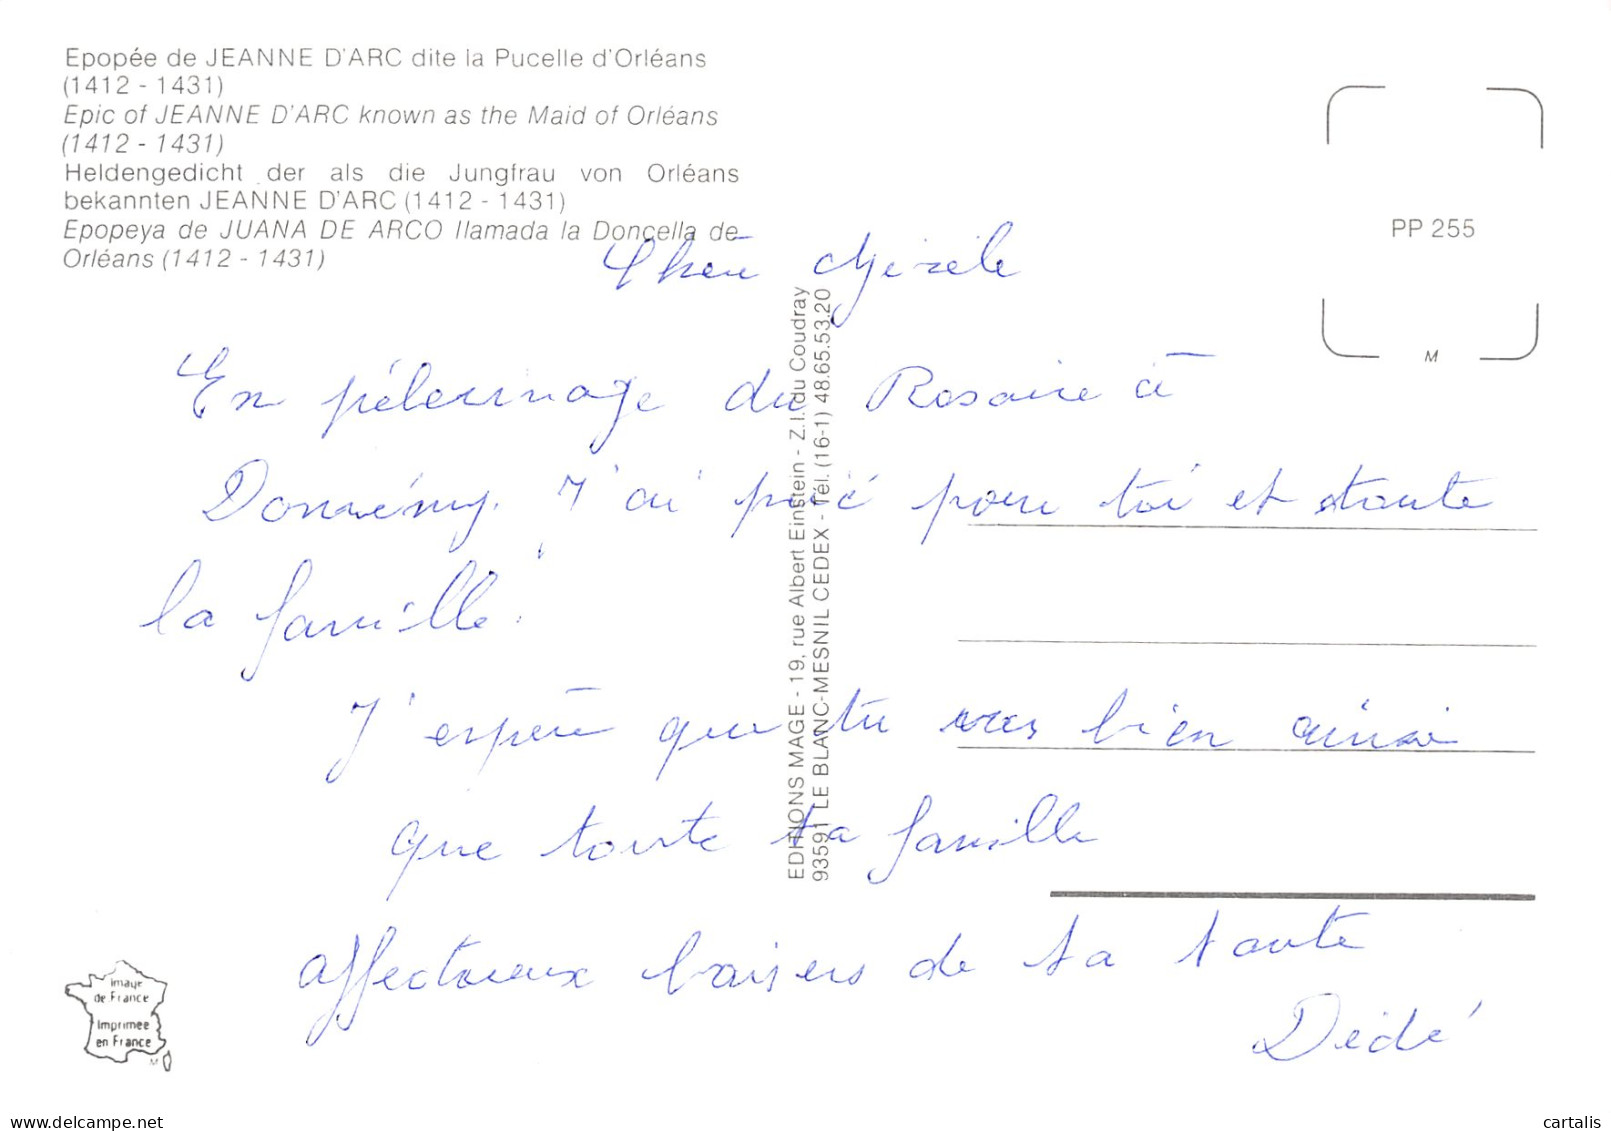 Epopée de JEANNE D'ARC dite la Pucelle d'Orléans
(1412 - 1431)
Epic of JEANNE D'ARC known as the Maid of Orléans
(1412 - 1431)
Heldengedicht der als die Jungfrau von Orléans
bekannten JEANNE D'ARC (1412 - 1431)
Epopeya de JUANA DE ARCO llamada la Doncella de
Orléans (1412 - 1431)
PP 255
M
Chère
En pélerinage du Rosaire à
Domrémy. J'ai prié pour toi et toute
la famille.
J'espère que tu vas bien ainsi
que toute ta famille
affectueux baisers de ta tante
Dédé
EDITIONS MAGE - 19, rue Albert Einstein - Z.I. du Coudray
93591 LE BLANC-MESNIL CEDEX - Tél. (16-1) 48.65.53.20
image
de France
Imprimée
en France
M
delcampe.net
cartalis